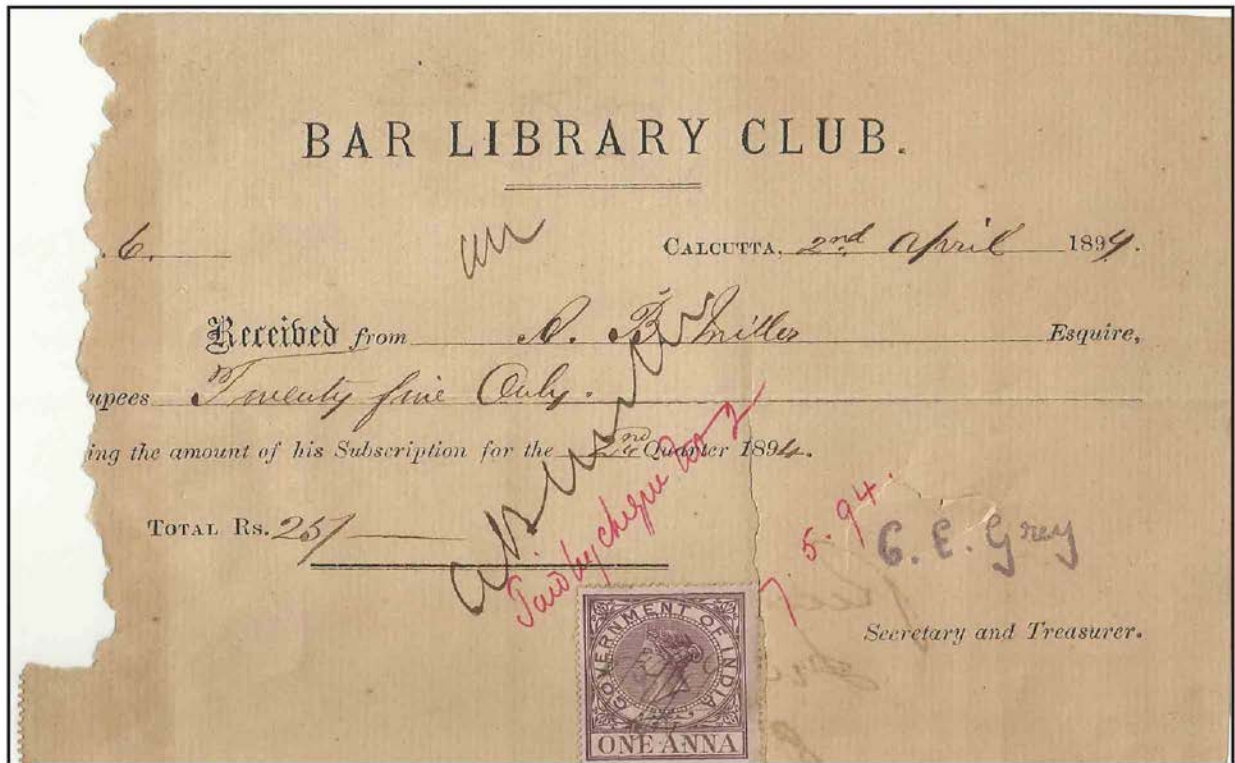 BAR LIBRARY CLUB.
. 6.
CALCUTTA, 2nd April 1894.
Received from A. B. Miller Esquire,
upees Twenty five Only.
ing the amount of his Subscription for the 2nd Quarter 1894.
TOTAL Rs. 25/
Paid by cheque
7.5.94.
C. E. Grey
Secretary and Treasurer.
GOVERNMENT OF INDIA
ONE ANNA